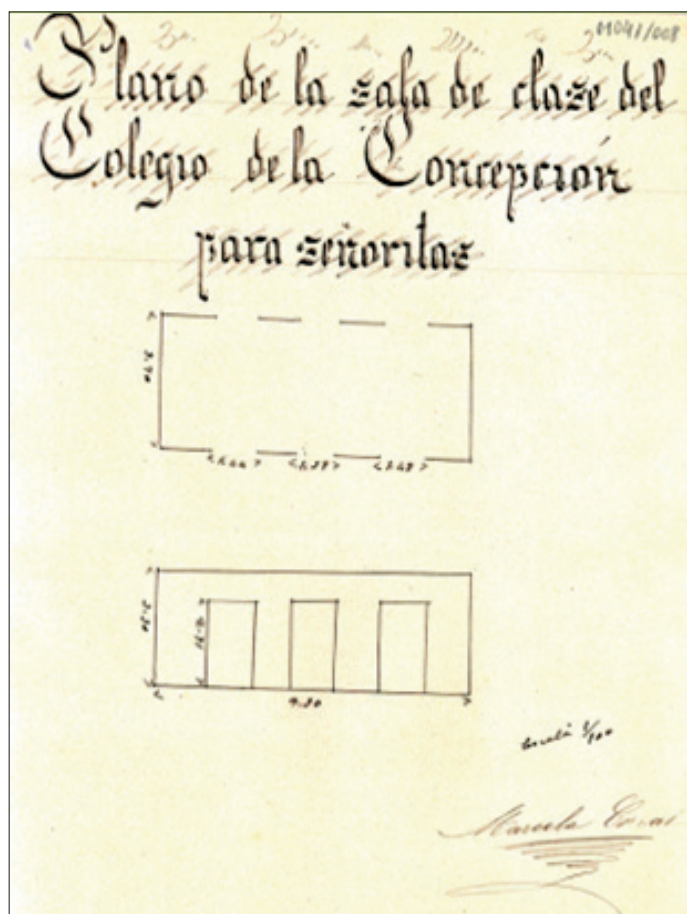 01041/008
Plano de la sala de clase del
Colegio de la Concepción
para señoritas
3.70
9.30
Escala 1/100
Marcela